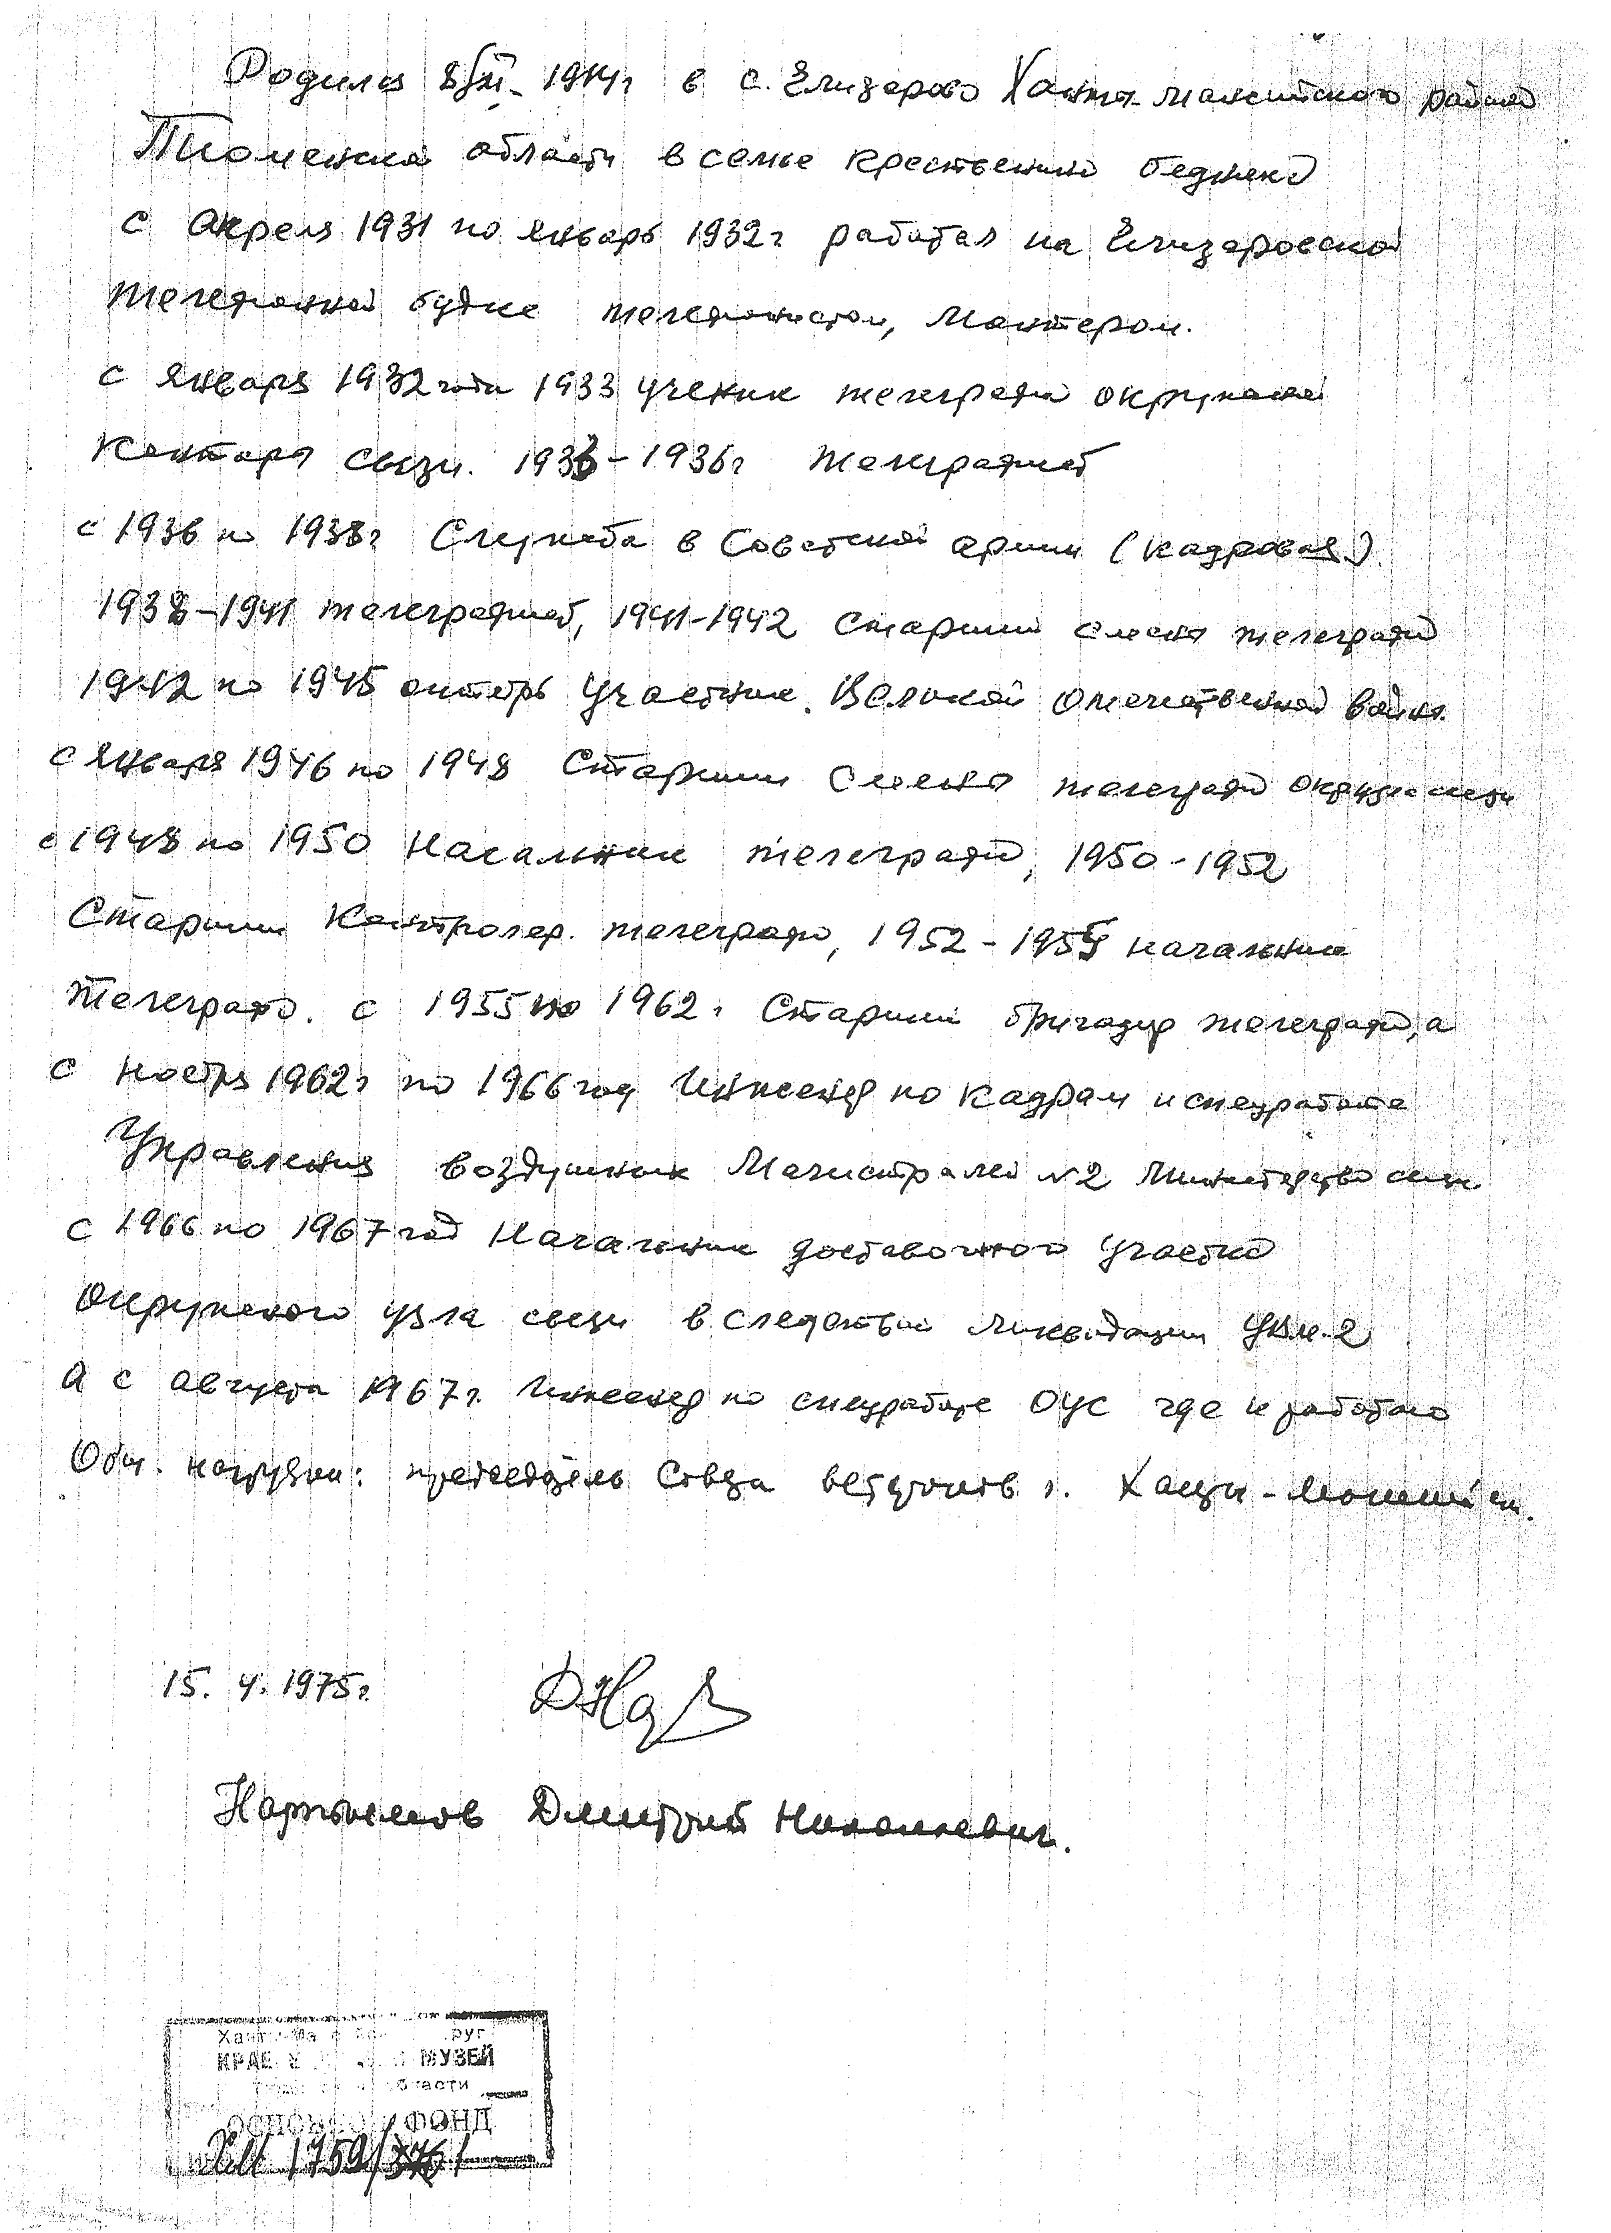 Родился 8/XI-1914г в с. Елизарово Ханты-Мансийского района
Тюменской области в семье крестьянина бедняка
с апреля 1931 по январь 1932г работал на Елизаровской
телефонной будке телефонистом, монтером.
с января 1932 года 1933 ученик телеграфа окружной
конторы связи. 1933-1936г телеграфист
с 1936 по 1938г Служба в Советской армии (кадровая)
1938-1941 телеграфист, 1941-1942 старший смены телеграфа
1942 по 1945 октябрь участник Великой Отечественной войны.
с января 1946 по 1948 Старший смены телеграфа окружн связи
с 1948 по 1950 Начальник телеграфа, 1950-1952
Старший контролер телеграфа, 1952-1955 начальник
телеграфа. с 1955 по 1962г Старший бригадир телеграфа, а
с ноября 1962г по 1966 год Инженер по кадрам и спецработе
Управления воздушных Магистралей №2 Министерства связи.
с 1966 по 1967 год Начальник доставочного участка
Окружного узла связи в следствии ликвидации УВМ-2
А с августа 1967г. Инженер по спецработе ОУС где и работаю
Общ. нагрузки: председатель Совета ветеранов г. Ханты-Мансийска.
15. 4. 1975г.
Нартымов Дмитрий Николаевич.
МУЗЕЙ
области
ФОНД
ХМ 1759/